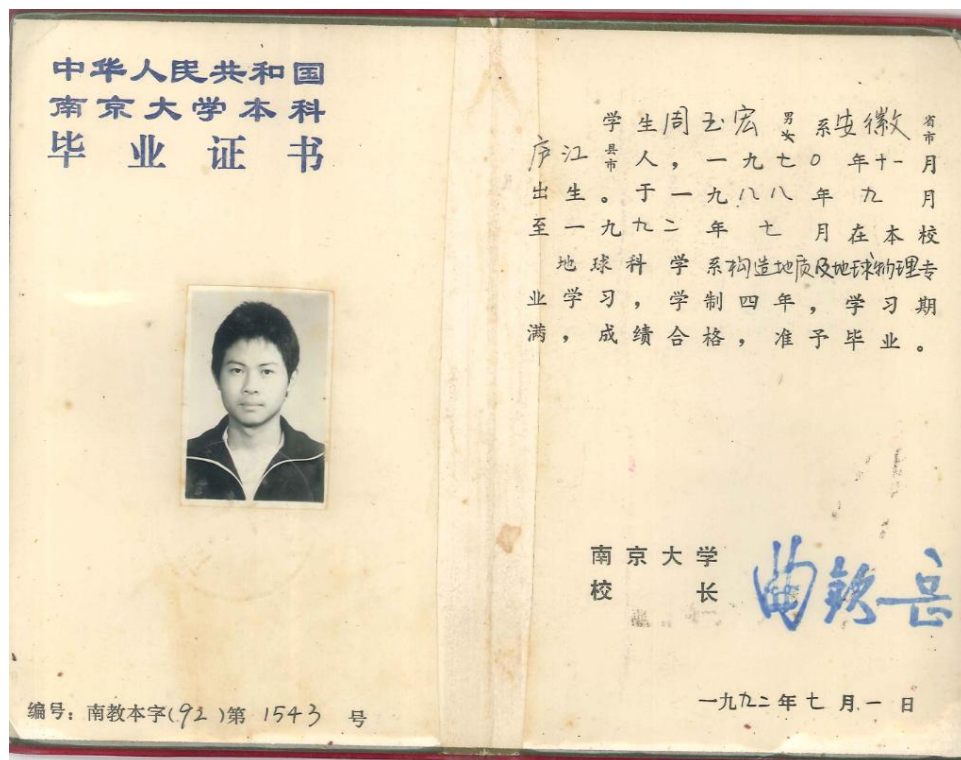 中华人民共和国
南京大学本科
毕业证书
编号：南教本字(92)第 1543 号
学生周玉宏 男女 系安徽 省市
庐江 县市 人，一九七〇年十一月
出生。于一九八八年九月
至一九九二年七月在本校
地球科学系构造地质及地球物理专
业学习，学制四年，学习期
满，成绩合格，准予毕业。
南京大学
校长 曲钦岳
一九九二年七月一日